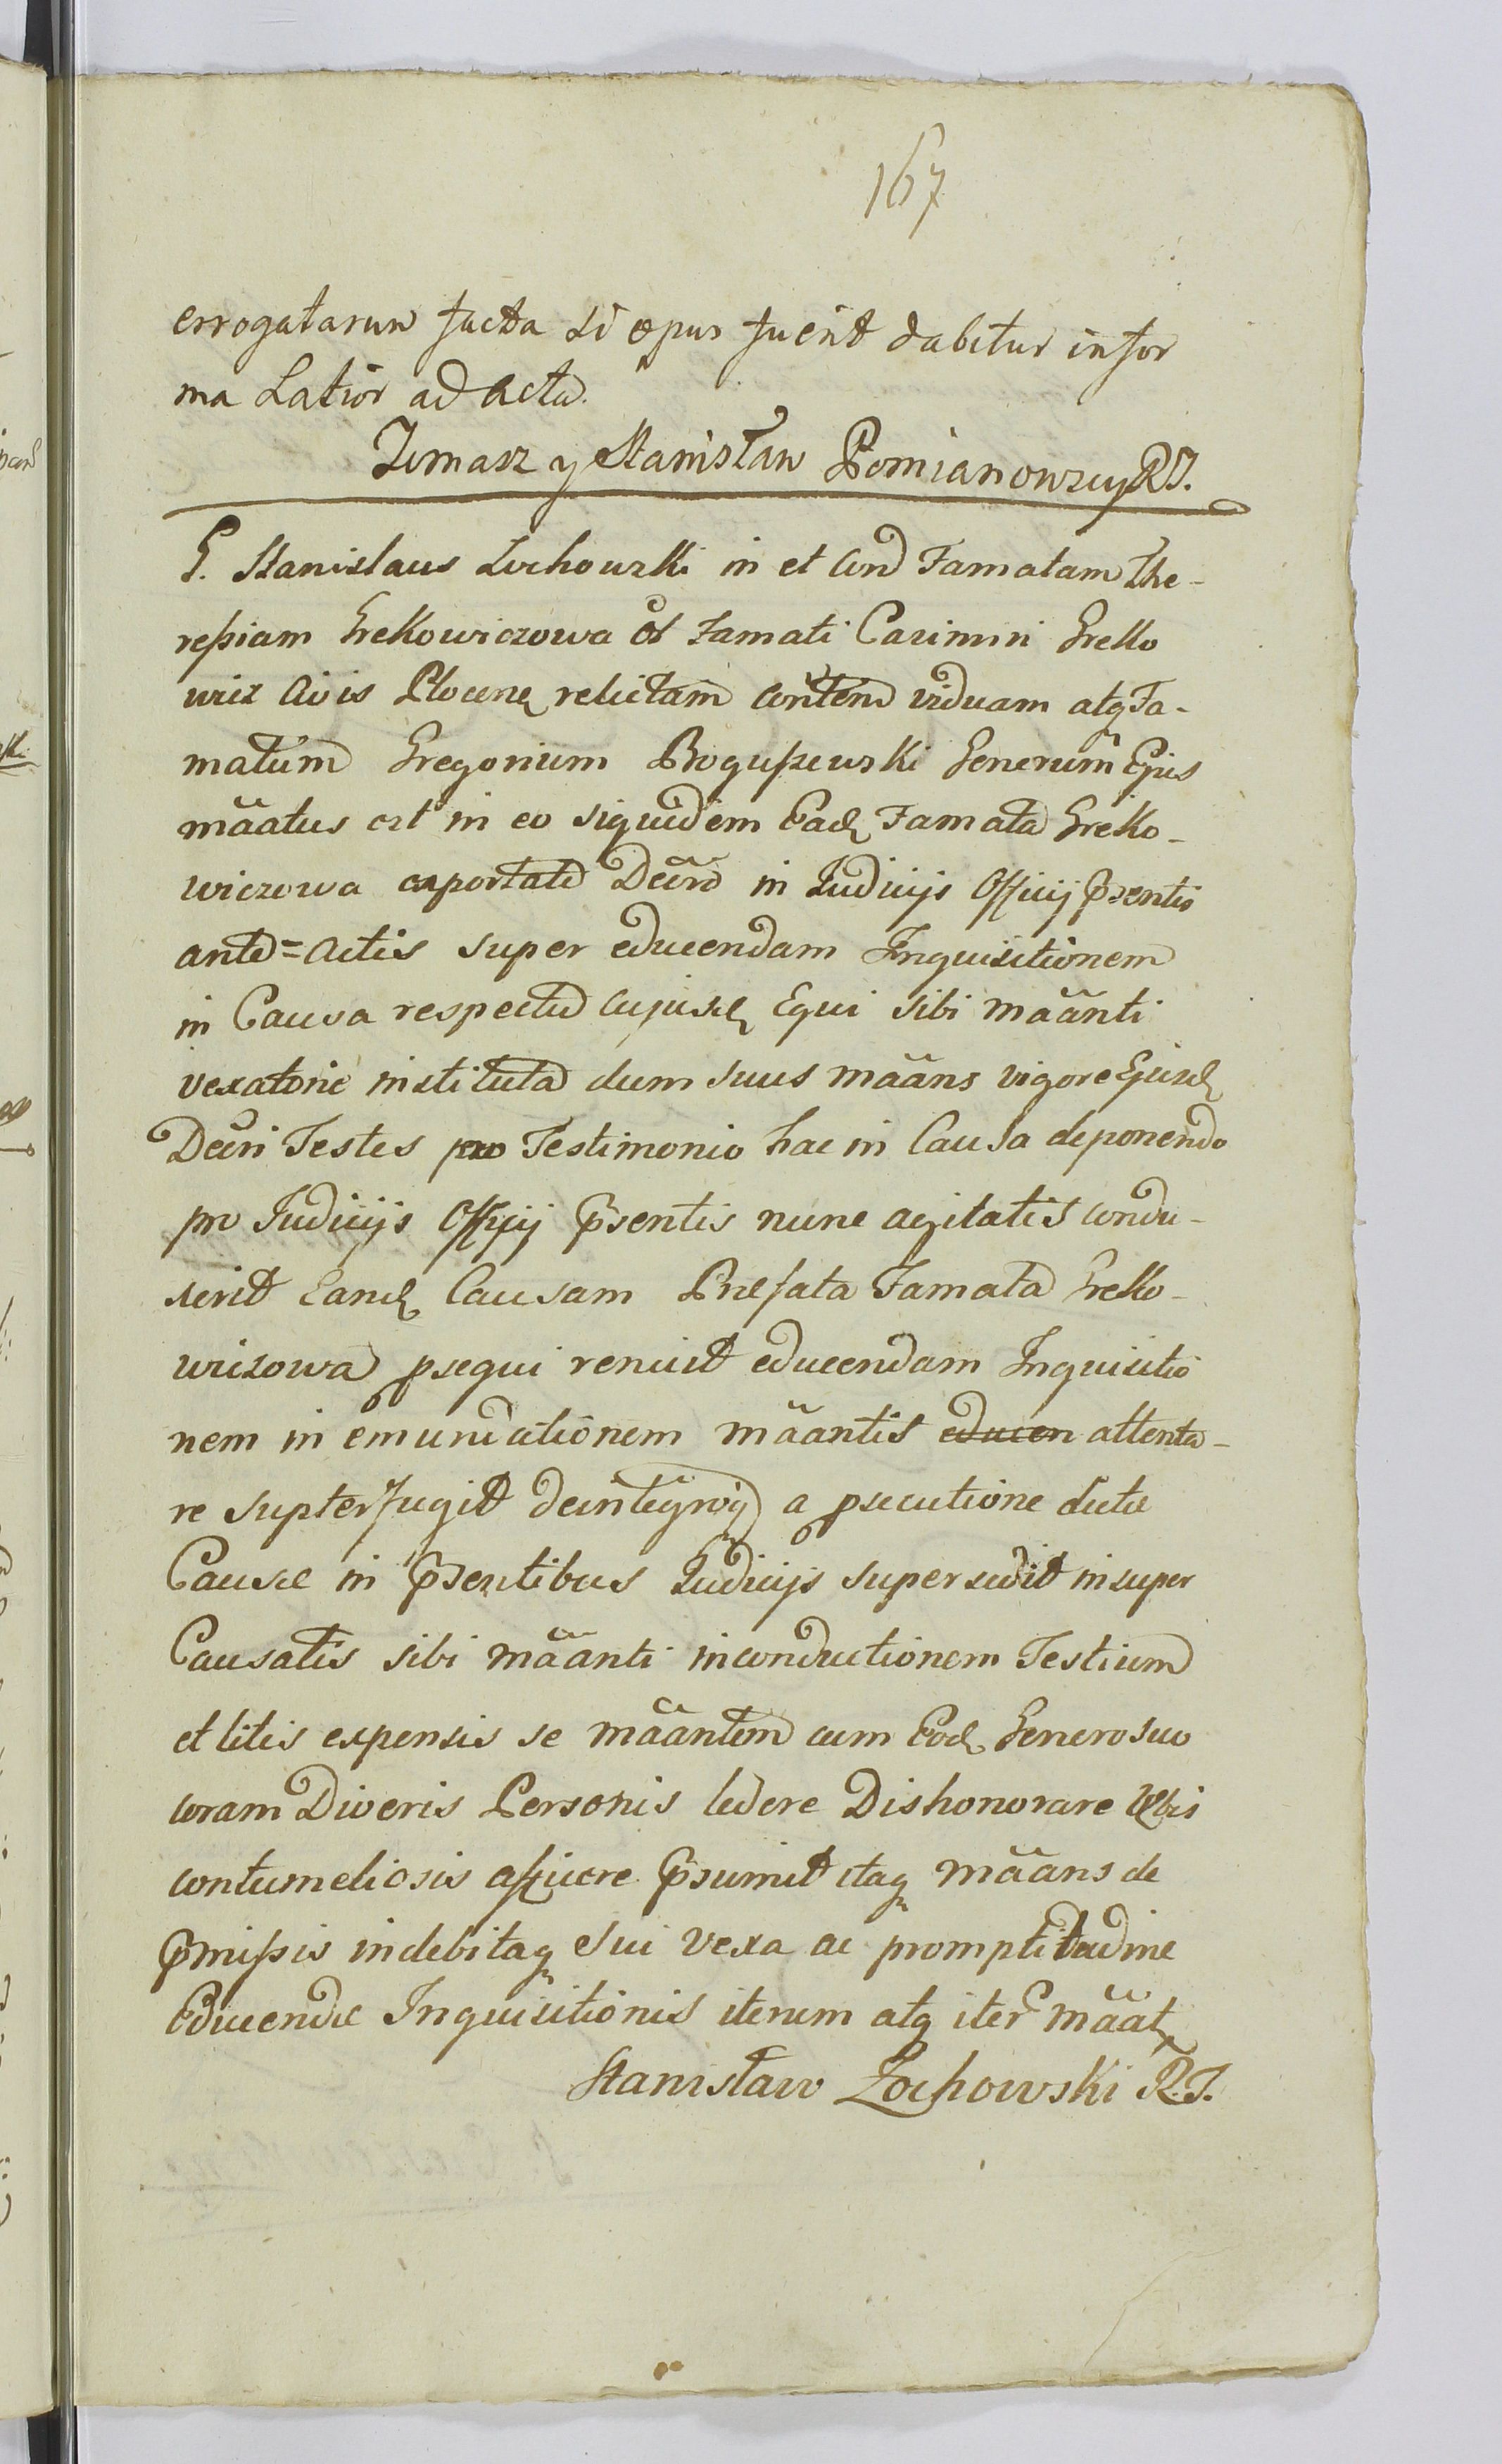 167
errogatarum facta si opus fuerit dabitur in for
ma Latior ad acta.
Tomasz y Stanisław Pomianowscy RJ.
G. Stanislaus Zochowski in et con Famatam The-
reßiam Grekowiczowa os Famati Casimiri Greko
wicz Civis Plocenę relictam conten viduam atq Fa-
matum Gregorium Bogußewski Generum Ejus
mãatus est in eo siquidem Eadę Famata Greko-
wiczowa exportato Decro in Judicijs Officij psentis
ante=actis super educendam Inquisitionem
in Causa respectu cujusdę Equi sibi mãanti
vexatorie instituta dum suus mãans vigore Ejusdę
Decri Testes pro Testimonio hac in Causa deponendo
pro Judicijs Officij psentis nunc agitatis condu-
xerit Eandę Causam Prefata Famata Greko-
wiczowa psequi renuit educendam Inquisitio
nem in emundationem mãantis educen attenta-
re supterfugit deintegroq a psecutione dictæ
Causæ in psentibus Judicijs supersedit insuper
Causatis sibi mãanti in conductionem Testium
et litis expensis se mãantem cum Eodę Genero suo
coram Diveris Personis ledere Dishonorare Vbis
contumeliosis afficere psumit itaq mãans de
pmißis indebitaq sui vexa ac promptitudine
Educendæ Inquisitionis iterum atq iter mãatę
Stanisław Zochowski R.J.